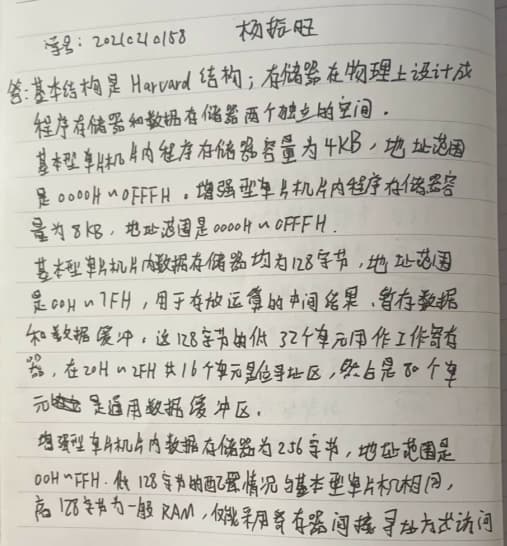 学号: 2021210158 杨振旺
答:基本结构是 Harvard 结构;存储器在物理上设计成
程序存储器和数据存储器两个独立的空间.
基本型单片机片内程序存储器容量为4KB,地址范围
是0000H~0FFFH.增强型单片机片内程序存储器容
量为8KB,地址范围是0000H~0FFFH.
基本型单片机片内数据存储器均为128字节,地址范围
是00H~7FH,用于存放运算的中间结果、暂存数据
和数据缓冲.这128字节的低32个单元用作工作寄存
器,在20H~2FH共16个单元是位寻址区,然后是80个单
元是通用数据缓冲区.
增强型单片机片内数据存储器为256字节,地址范围是
00H~FFH.低128字节的配置情况与基本型单片机相同,
高128字节为一般RAM,仅能采用寄存器间接寻址方式访问